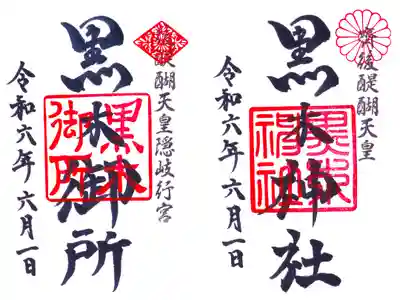 後醍醐天皇
黒木神社
令和六年六月一日
醍醐天皇隠岐行宮
黒木御所
黒木
御所
令和六年六月一日